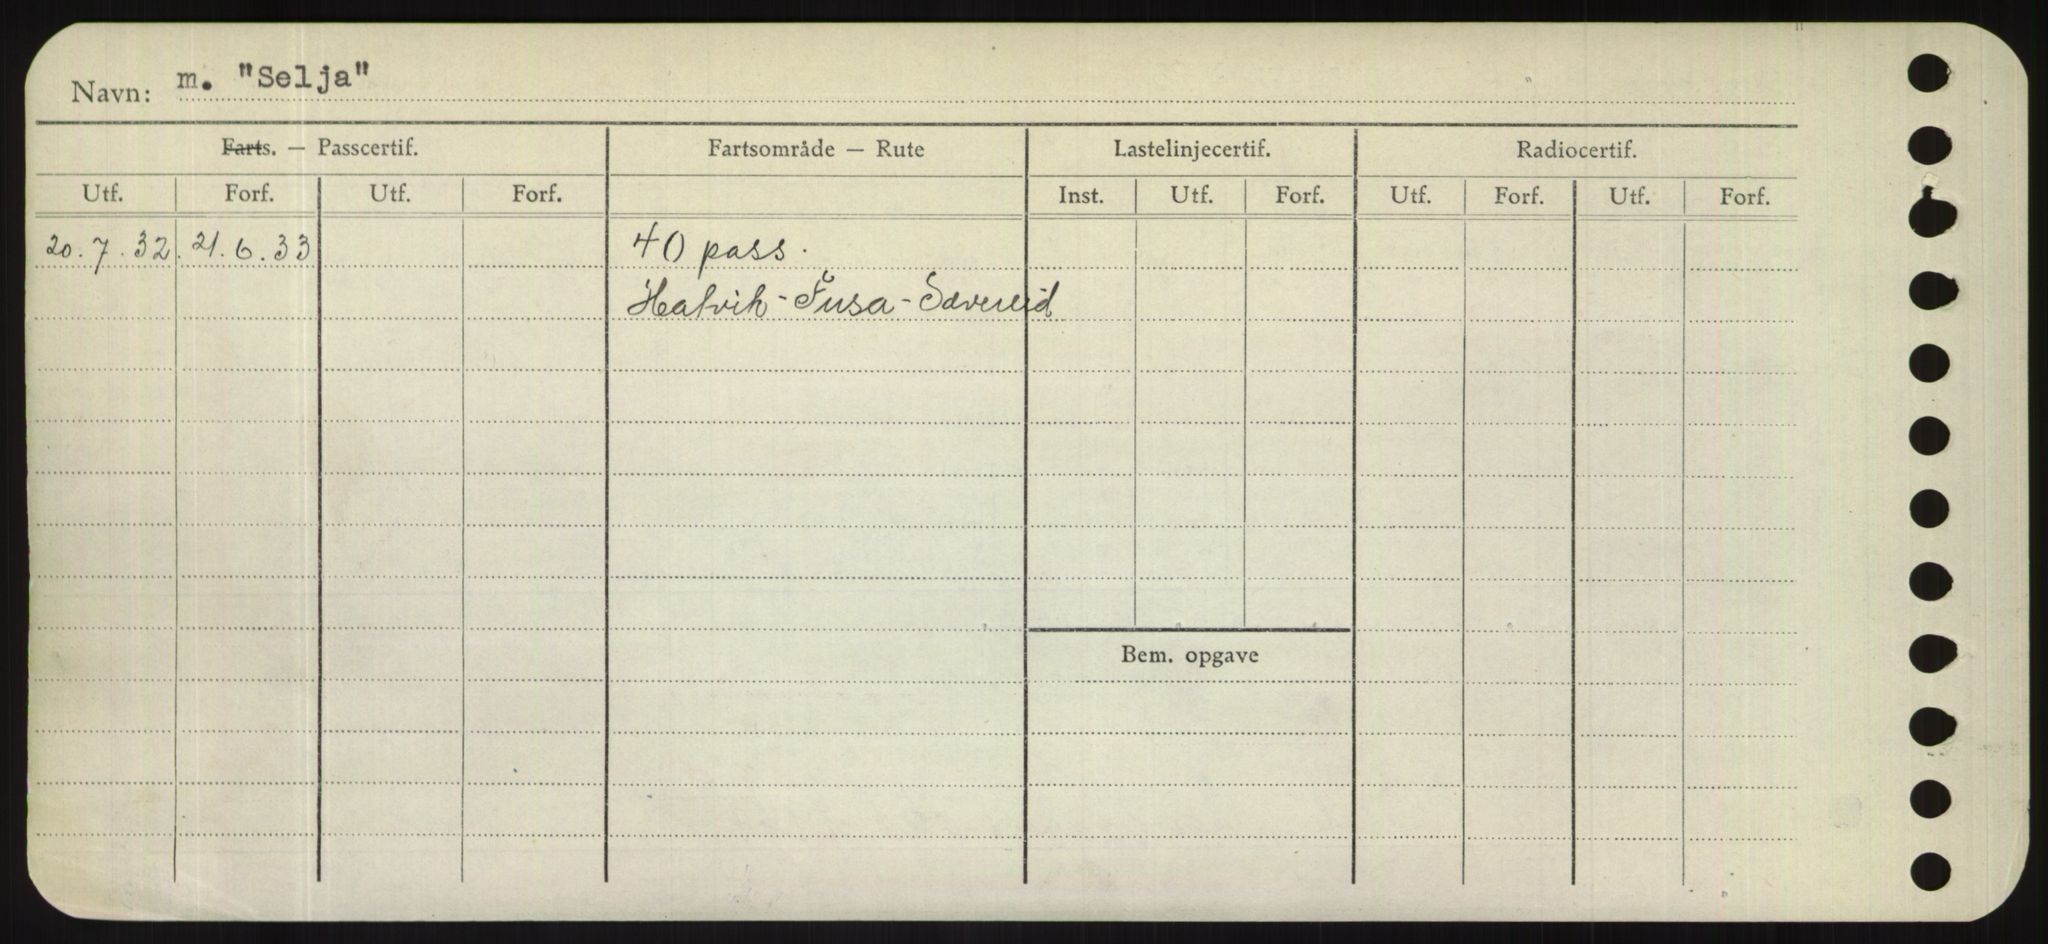 Navn: m. "Selja"
Farts. — Passcertif. Fartsområde — Rute Lastelinjecertif. Radiocertif.
Utf. Forf. Utf. Forf. Inst. Utf. Forf. Utf. Forf. Utf. Forf.
20.7.32. 21.6.33 40 pass.
Hatvik - Fusa - Sævereid
Bem. opgave